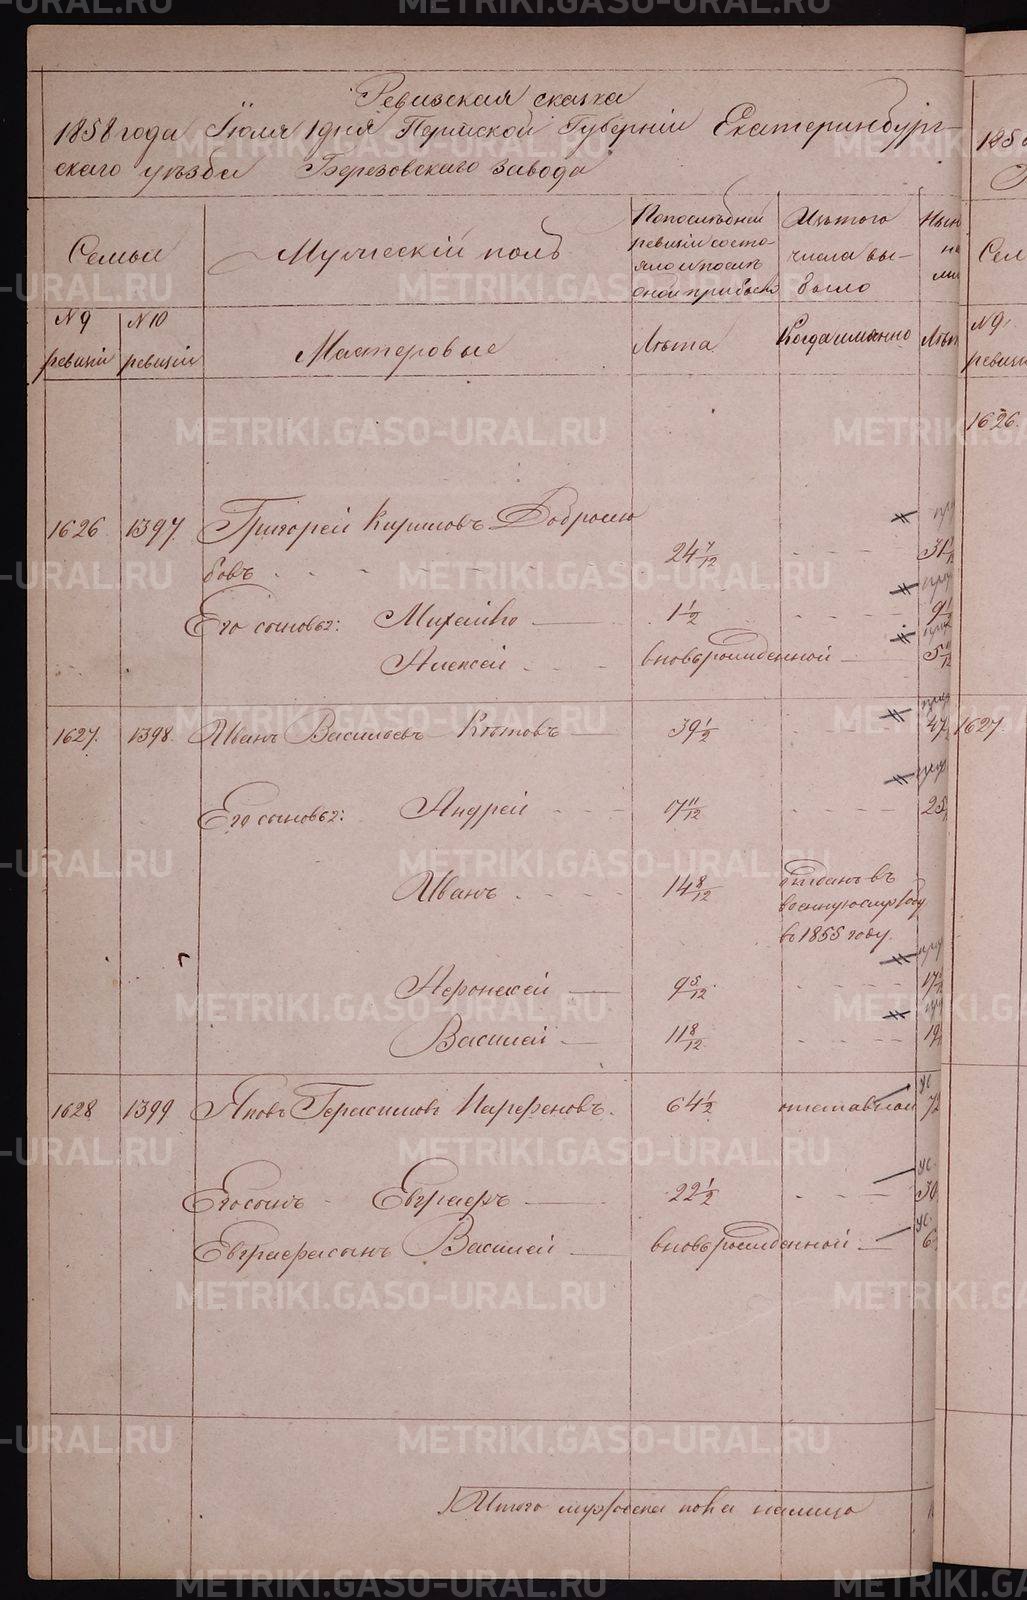 Ревизская сказка
1858 года Іюля 1 дня Пермской Губерніи Екатеринбург-
скаго уѣзда Березовскаго завода
Семьи
Мужескій полъ
По последней ревизіи состояло и послѣ оной прибыло
Изъ того числа вы-
было
№ 9 ревизіи
№ 10 ревизіи
Мастеровые
Лѣта
Когда именно
Лѣт
1626 1397 Григорей Кириловъ Добролю
бовъ 24 7/12 31
Его сыновья: Михайло 1 1/2 9
Алексей вновьрожденной 5 11/12
1627. 1398. Иванъ Васильевъ Котовъ 39 1/2 47
Его сыновья: Андрей 17 11/12 25
Иванъ 14 8/12 отданъ въ
военную службу
въ 1855 году.
Афонасей 9 5/12 17
Василей 11 8/12 19
1628 1399 Яковъ Герасимовъ Парфеновъ. 64 1/2 отставной 72
Его сынъ Евграфъ 22 1/2 30
Евграфа сынъ Василей вновьрожденной 6
Итого мужеска пола налицо
185
Сем
№ 9
ревизіи
1626.
1627.
METRIKI.GASO-URAL.RU